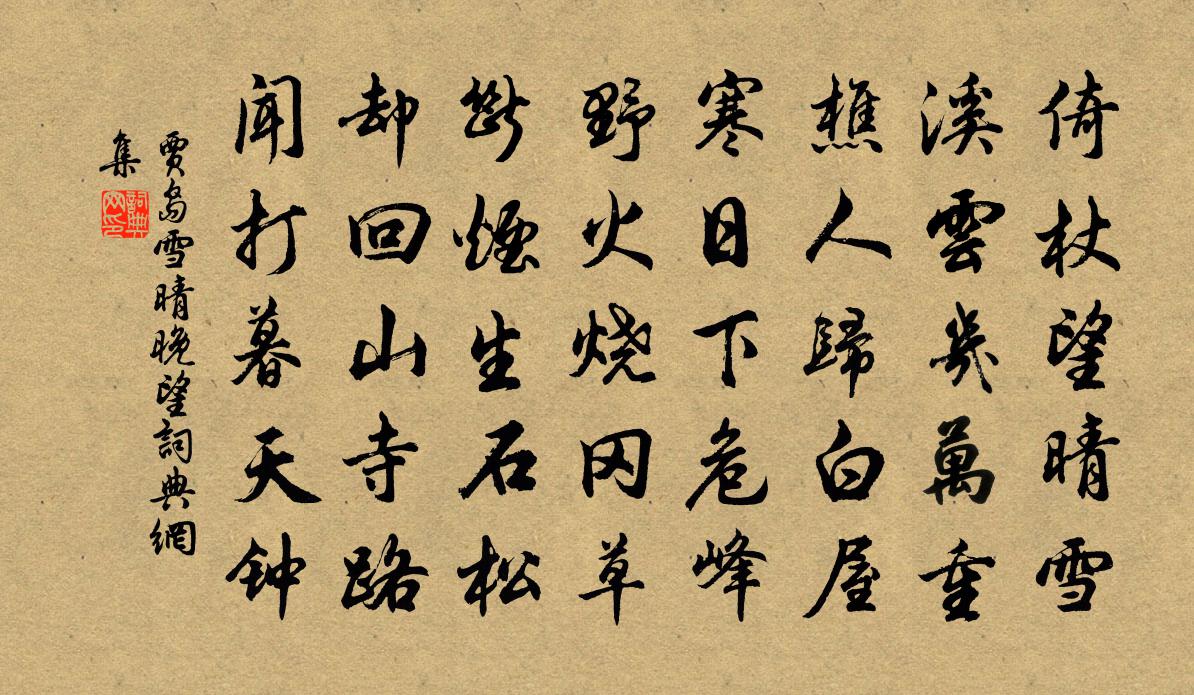 倚杖望晴雪
溪雲幾萬重
樵人歸白屋
寒日下危峰
野火烧冈草
斷煙生石松
却回山寺路
闻打暮天钟
賈島雪晴晚望詞典網
集
詞典
网印